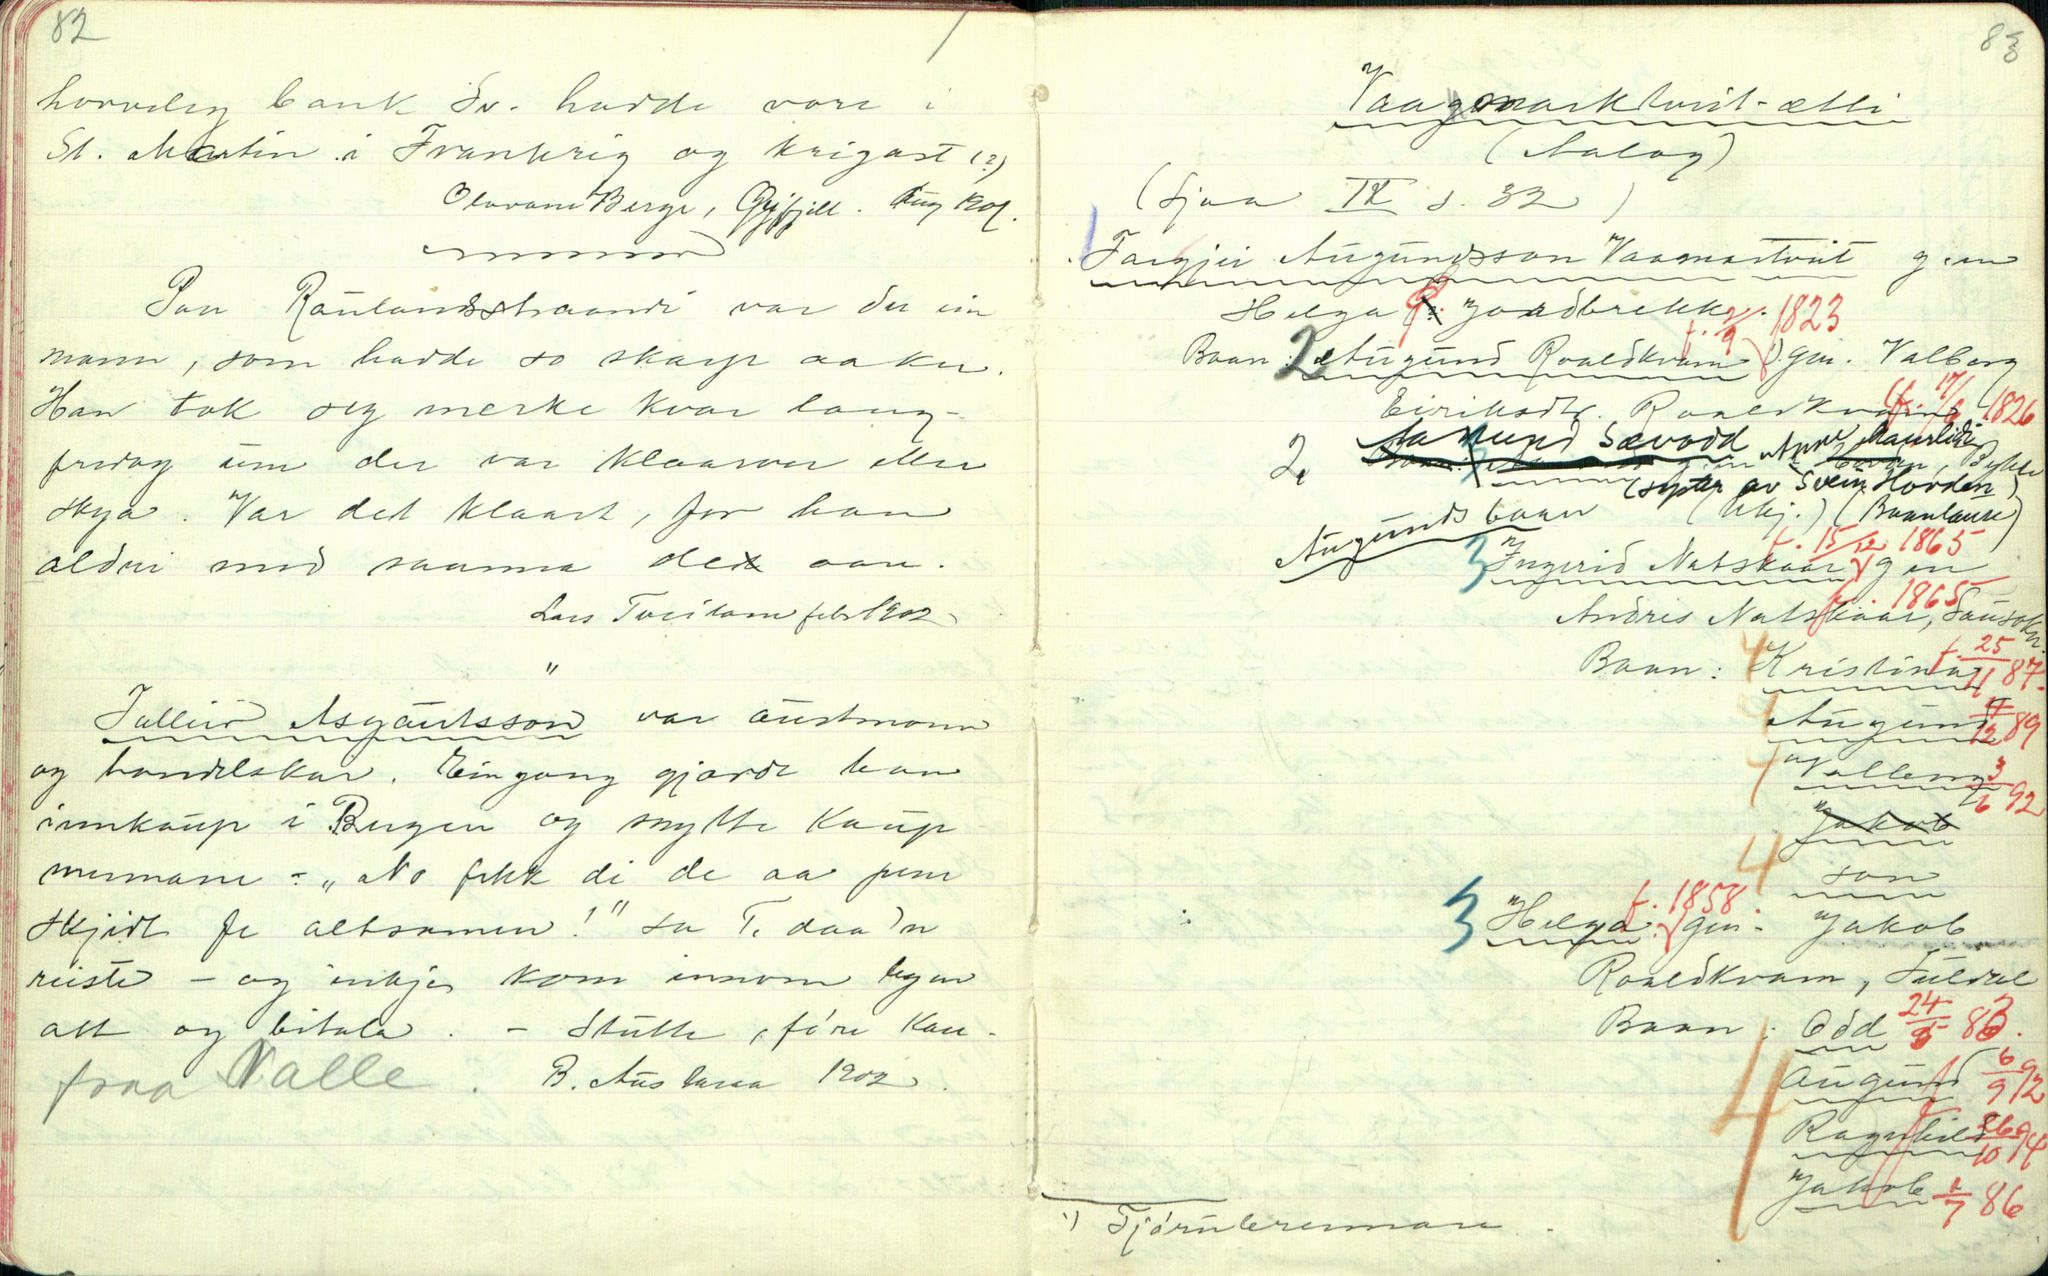 82
horveleg bank Sv. hadde vore i
St. Martin i Frankrig og krigast (?)
Olavane Berge, Gyfjell. Aug 1901.
Paa Raulandsstraandi var der ein
mann, som hadde so skarp aaker.
Han tok seg merke kvar lang-
fredag um der var klaarver eller
skya. Var det klaart, for han
aldri med saamaa det aar.
Lars Tveitane febr 1902
"
Talleiv Asgautsson var austmann
og handelskar. Ein gong gjorde han
innkaup i Bergen og snytte kaup-
mennane - „No fekk di de aa pene
skjidt fe altsamen!" sa T. daa 'n
reiste - og inkje kom innom igen
att og bitala. - Stutte, fóre kar-
fraa Valle. B. Austaraa 1902.
83
Vaagmarktveit-ætti
(Aalag)
(Sjaa IV s. 32)
1 Targjei Augundsson Vaamartveit g. m
Helga Jordbrekk.
Baan: 2 Augund Roaldkvam f. 2/9 1823 1) gm. Valborg
Eiriksdtr. Roaldkvam f. 17/6 1826
2, Aamund Sævodd g. m Anne Maurlid, Bykle
(syster av Svein Hovden)
(Ukj.) (Baanlause)
Augunds baan
3 Ingerid Natskaar f. 15/12 1865 g m
Andres Natskaar, f. 1865 Sausokn.
Baan: 4 Kristina f. 25/11 87.
4 Augund 11/12 89
4 Valborg 3/6 92
Jakob
4 son
3 Helga f. 1858 gm. Jakob
Roaldkvam, Suldal
Baan: Odd 24/5 83.
4 Augund 6/9 92
Ragnhild 26/10 94
Jakob 1/7 86
1) Tjórubrennare.